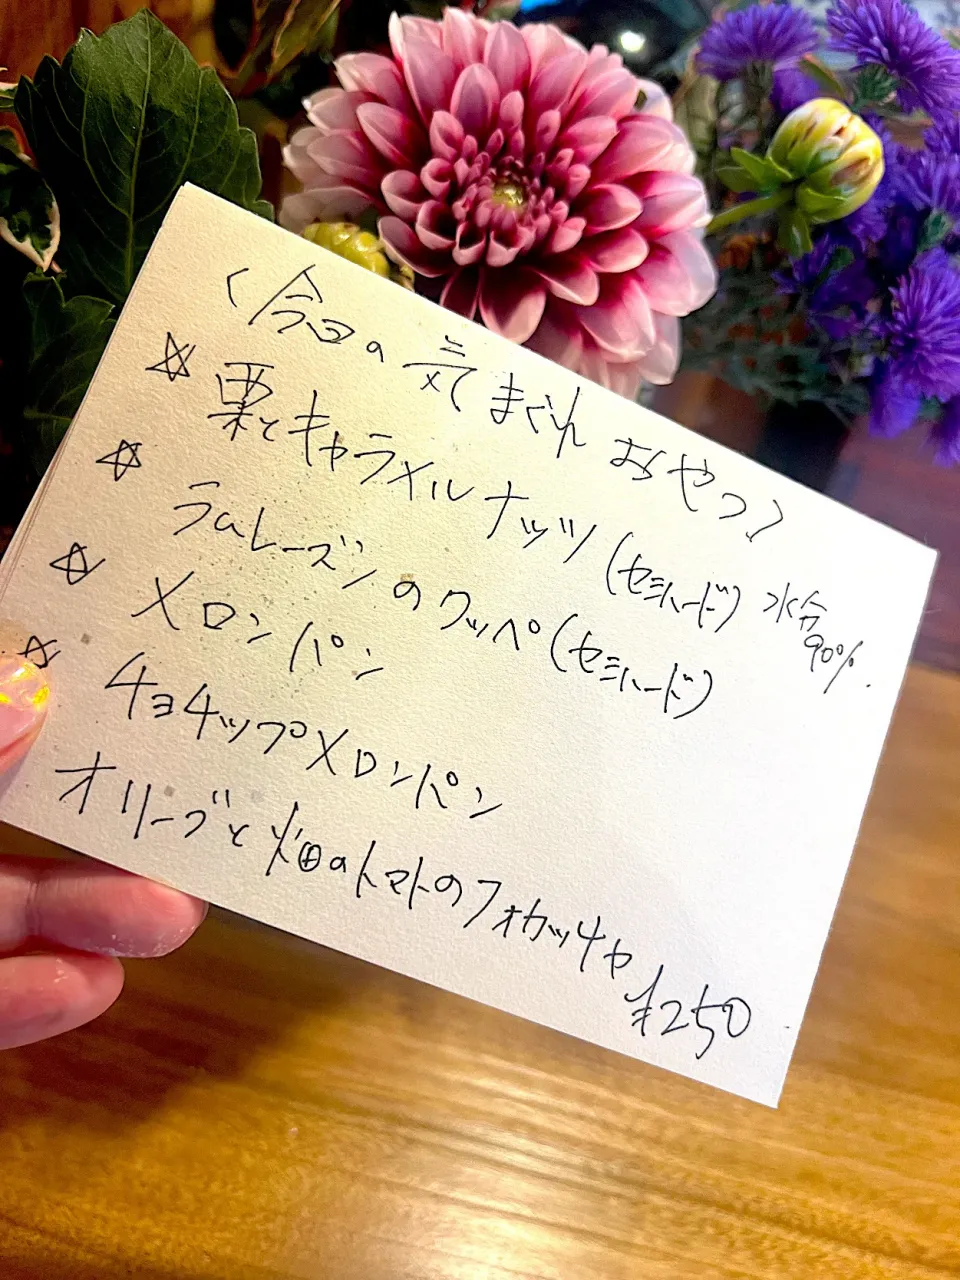 〈今日の気まぐれおやつ〉
☆栗とキャラメルナッツ(セミハード)水分90%.
☆ラムレーズンのクッペ(セミハード)
☆メロンパン
☆チョチップメロンパン
オリーブと畑のトマトのフォカッチャ ¥250